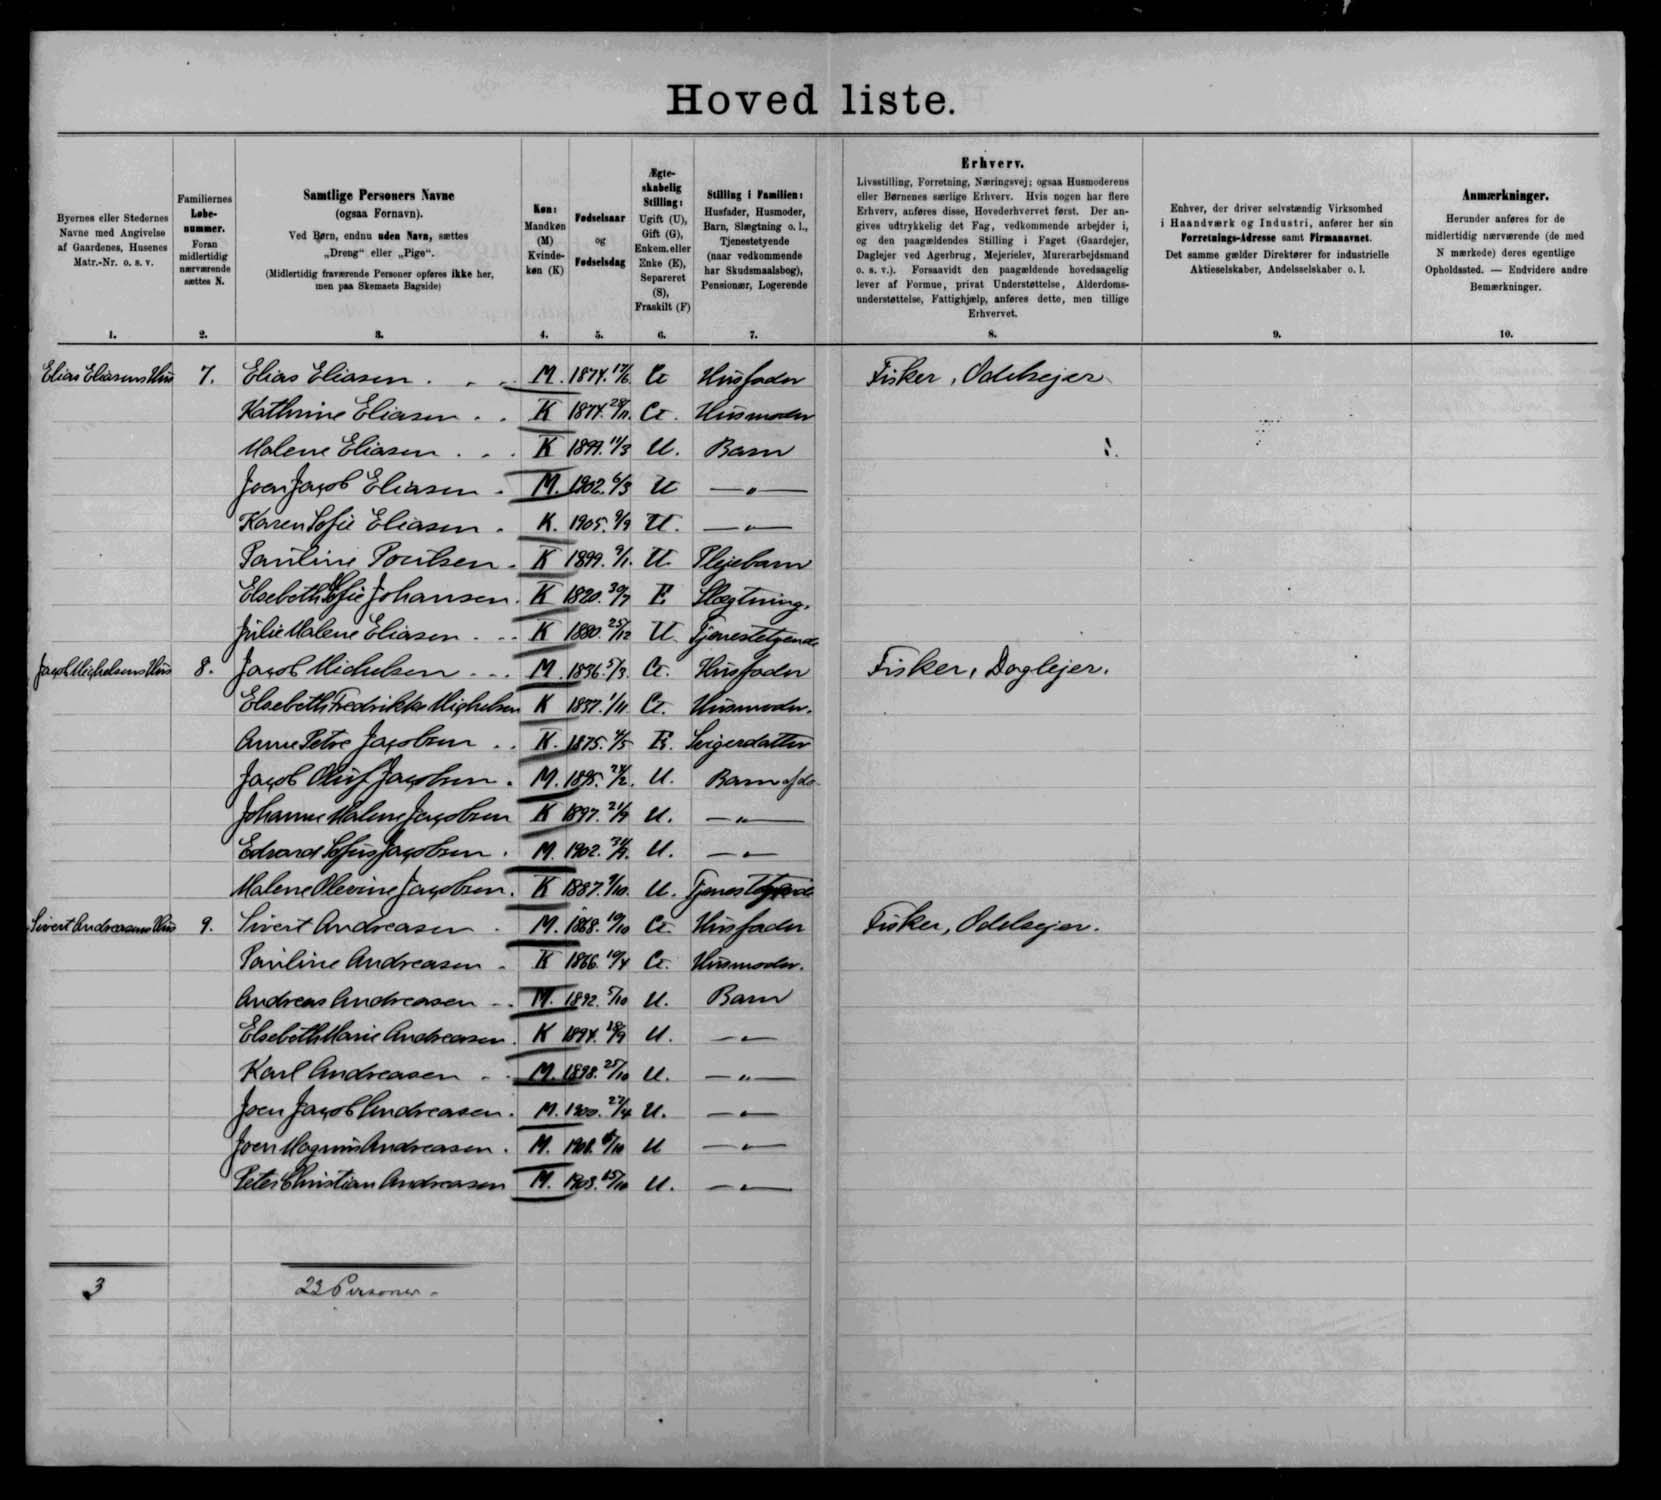 Hoved liste.
Byernes eller Stedernes
Navne med Angivelse
af Gaardenes, Husenes
Matr.-Nr. o. s. v.
1.
Familiernes
Løbe-
nummer.
Foran
midlertidig
nærværende
sættes N.
2.
Samtlige Personers Navne
(ogsaa Fornavn).
Ved Børn, endnu uden Navn, sættes
„Dreng“ eller „Pige“.
(Midlertidig fraværende Personer opføres ikke her,
men paa Skemaets Bagside)
3.
Køn:
Mandkøn
(M)
Kvinde-
køn (K)
4.
Fødselsaar
og
Fødselsdag
5.
Ægte-
skabelig
Stilling:
Ugift (U),
Gift (G),
Enkem. eller
Enke (E),
Separeret
(S),
Fraskilt (F)
6.
Stilling i Familien:
Husfader, Husmoder,
Barn, Slægtning o. l.,
Tjenestetyende
(naar vedkommende
har Skudsmaalsbog),
Pensionær, Logerende
7.
Erhverv.
Livsstilling, Forretning, Næringsvej; ogsaa Husmoderens
eller Børnenes særlige Erhverv. Hvis nogen har flere
Erhverv, anføres disse, Hovederhvervet først. Der an-
gives udtrykkelig det Fag, vedkommende arbejder i,
og den paagældendes Stilling i Faget (Gaardejer,
Daglejer ved Agerbrug, Mejerielev, Murerarbejdsmand
o. s. v.). Forsaavidt den paagældende hovedsagelig
lever af Formue, privat Understøttelse, Alderdoms-
understøttelse, Fattighjælp, anføres dette, men tillige
Erhvervet.
8.
Enhver, der driver selvstændig Virksomhed
i Haandværk og Industri, anfører her sin
Forretnings-Adresse samt Firmanavnet.
Det samme gælder Direktører for industrielle
Aktieselskaber, Andelsselskaber o. l.
9.
Anmærkninger.
Herunder anføres for de
midlertidig nærværende (de med
N mærkede) deres egentlige
Opholdssted. — Endvidere andre
Bemærkninger.
10.
Elias Eliasens Hus 7. Elias Eliasen . . . M. 1874. 17/6 G Husfader Fisker, Odelsejer
Kathrine Eliasen . . K 1874. 28/11. G. Husmoder
Malene Eliasen . . . K 1899. 11/3 U. Barn
Joen Jacob Eliasen . M. 1902. 6/3 U — " —
Karen Sofie Eliasen . K. 1905. 9/9 U. — " —
Pauline Poulsen . K 1899. 9/1. U. Plejebarn
Elsebeth Sofie Johansen . K 1820. 30/7 E. Slægtning.
Julie Malene Eliasen . . . K 1880. 25/12 U. Tjenestetyende
Jacob Michelsens Hus 8. Jacob Michelsen . . . M. 1836. 5/3. G. Husfader Fisker, Daglejer.
Elsebeth Fredrikke Michelsen K 1837. 1/11 G. Husmoder.
Anne Petre Jacobsen . . K. 1875. 4/5 E. Svigerdatter
Jacob Oluf Jacobsen . M. 1895. 24/2. U. Barn af do
Johanne Malene Jacobsen K 1897. 21/9 U. — " —
Edvard Sofus Jacobsen . M. 1902. U. — " —
Malene Olevine Jacobsen. K 1887. 9/10. U. Tjenestetyende
Sivert Andreasens Hus 9. Sivert Andreasen . M. 1868. 19/10 G. Husfader Fisker, Odelsejer.
Pauline Andreasen . K 1866. 19/4 G. Husmoder.
Andreas Andreasen . . M. 1892. 5/10 U. Barn
Elsebeth Marie Andreasen . K 1894. 28/9 U. — " —
Karl Andreasen . . M. 1898. 25/10 U. — " —
Joen Jacob Andreasen . M. 1900. 27/4 U. — " —
Joen Magnus Andreasen . M. U — " —
Peter Christian Andreasen M. U. — " —
3 22 Personer.